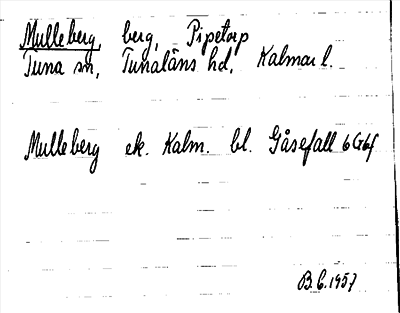 Mulleberg, berg, Pipetorp
Tuna sn, Tunaläns hd, Kalmar l.
Mulleberg ek. Kalm. bl. Gåsefall 6G6f
B.C. 1957